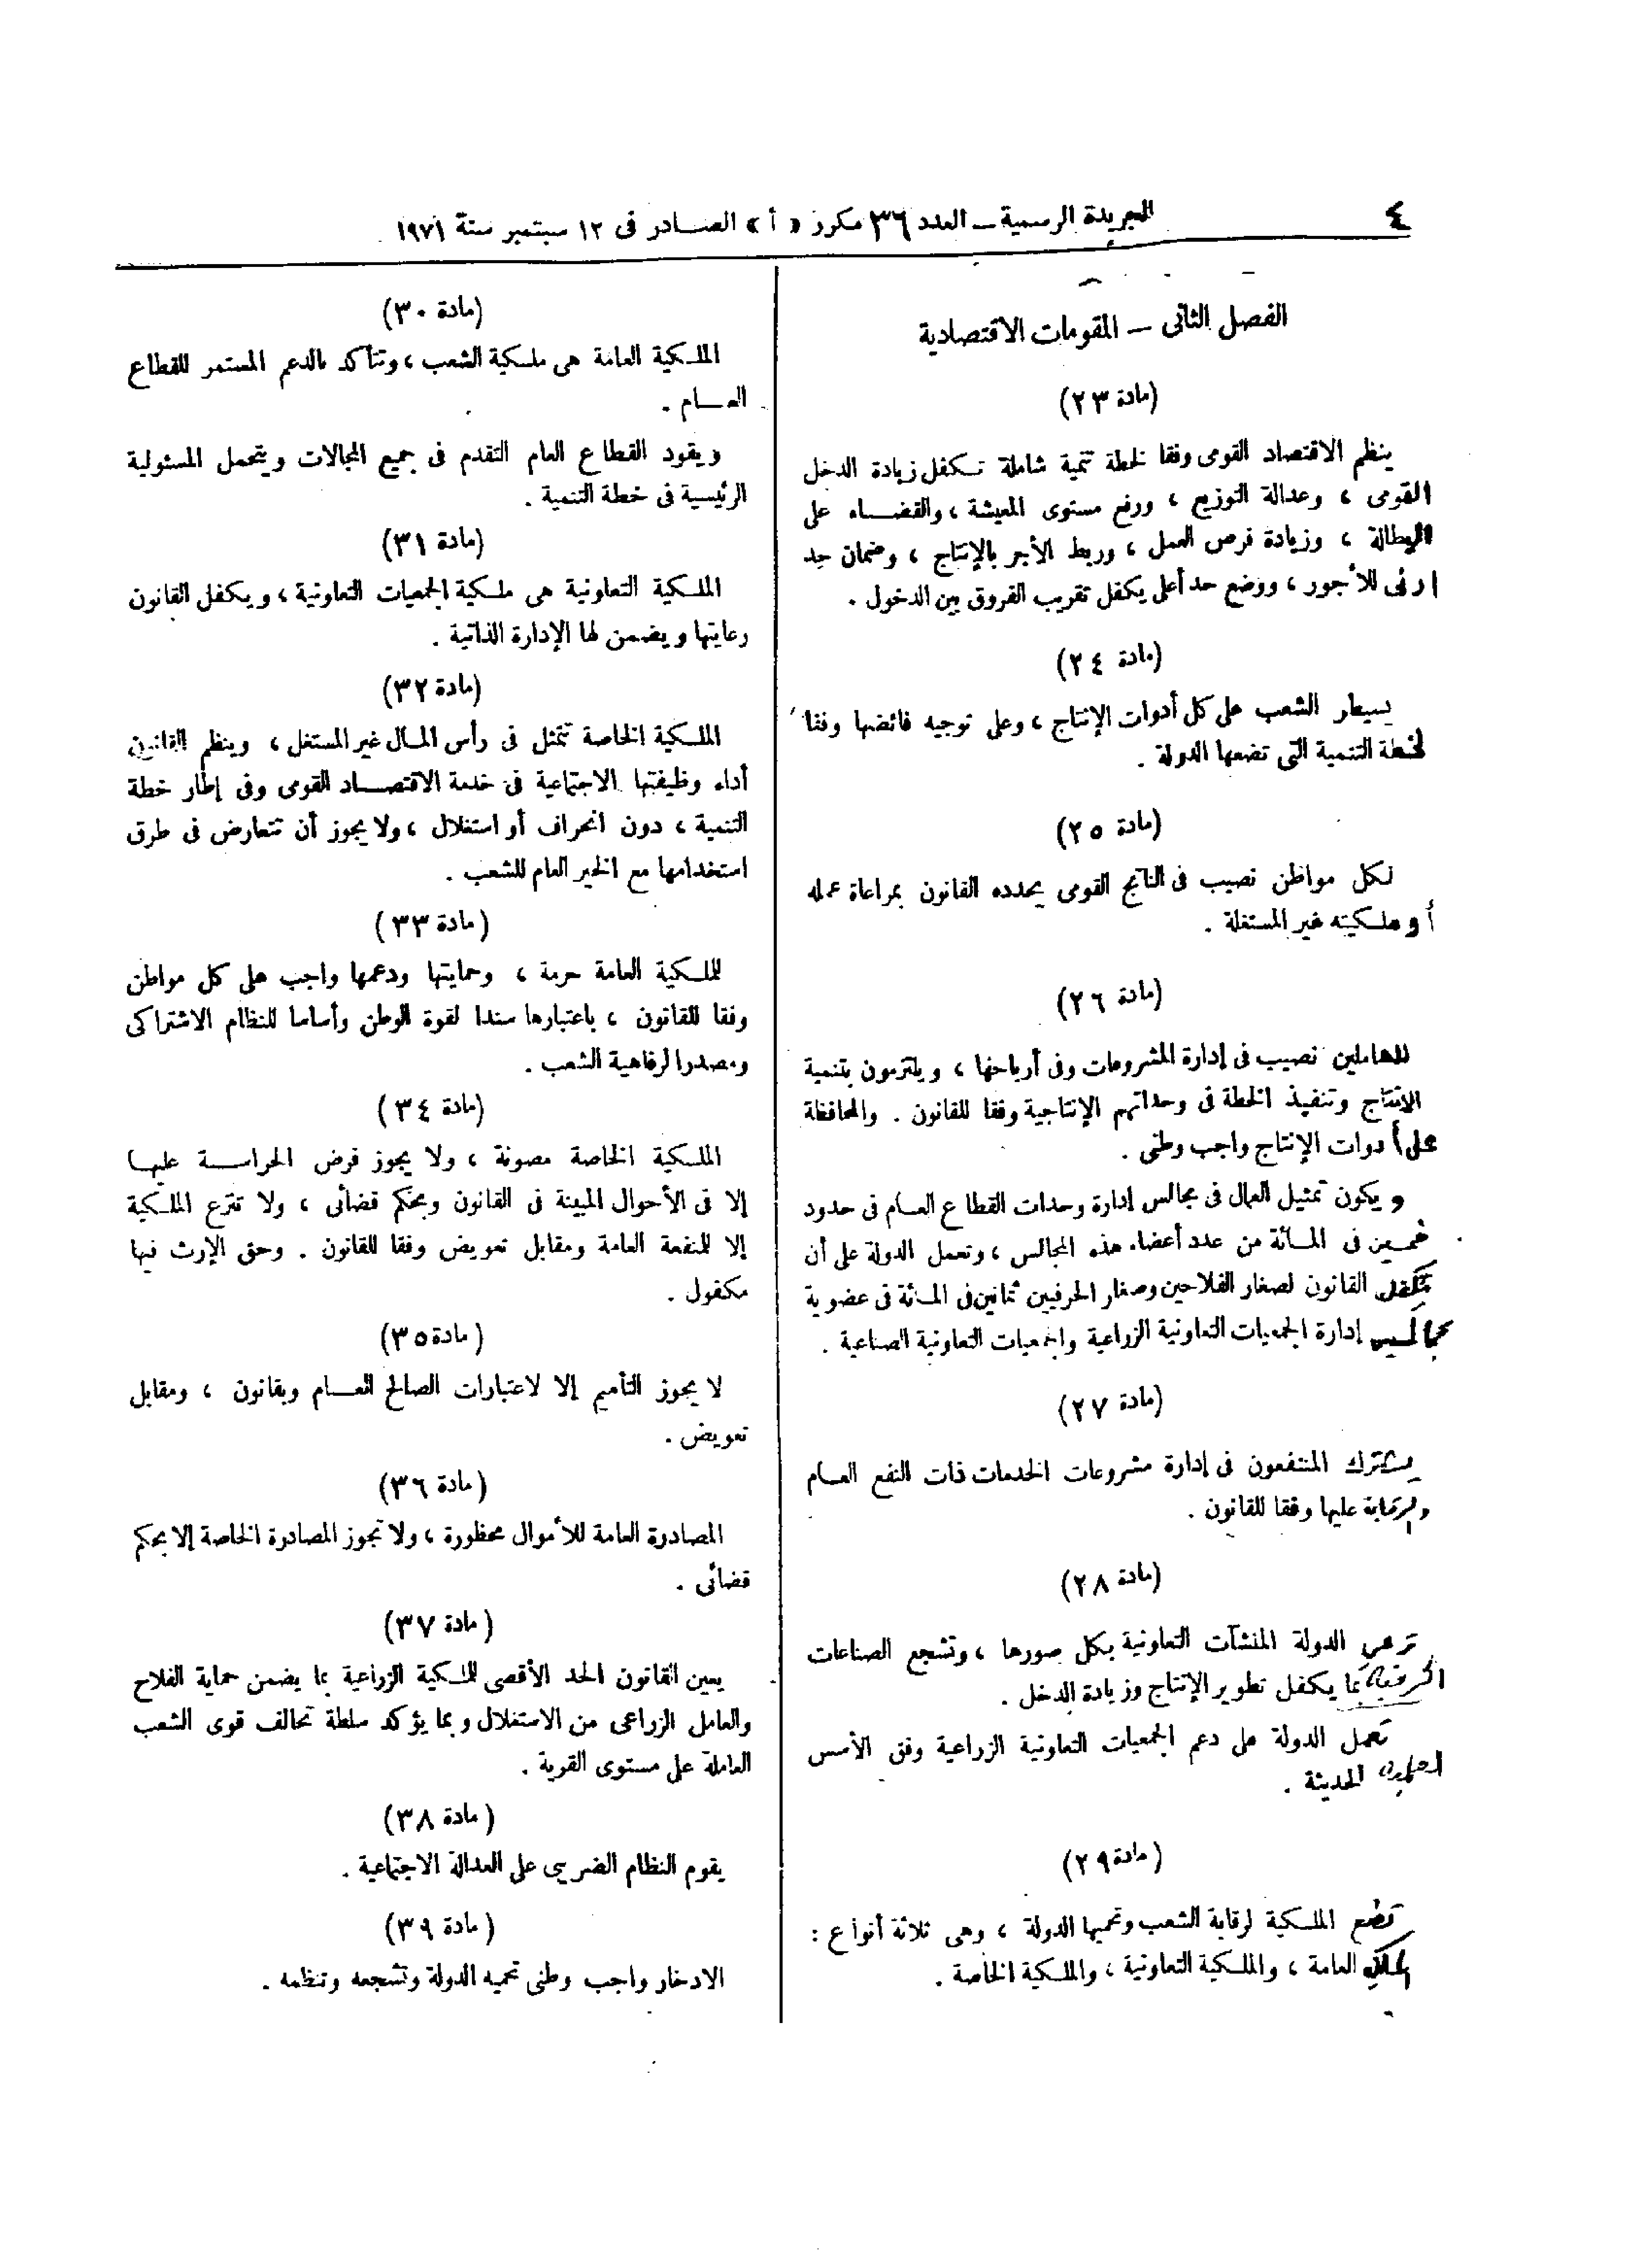 ٤
الجريدة الرسمية – العدد ٣٦ مكرر «أ» الصادر فى ١٢ سبتمبر سنة ١٩٧١
الفصل الثانى – المقومات الاقتصادية
(مادة ٢٣)
ينظم الاقتصاد القومى وفقا لخطة تنمية شاملة تكفل زيادة الدخل
القومى ، وعدالة التوزيع ، ورفع مستوى المعيشة ، والقضاء على
البطالة ، وزيادة فرص العمل ، وربط الأجر بالإنتاج ، وضمان حد
أدنى للأجور ، ووضع حد أعلى يكفل تقريب الفروق بين الدخول .
(مادة ٢٤)
يسيطر الشعب على كل أدوات الإنتاج ، وعلى توجيه فائضها وفقا
لخطة التنمية التى تضعها الدولة .
(مادة ٢٥)
لكل مواطن نصيب فى الناتج القومى يحدده القانون بمراعاة عمله
أو ملكيته غير المستغلة .
(مادة ٢٦)
للعاملين نصيب فى إدارة المشروعات وفى أرباحها ، ويلتزمون بتنمية
الإنتاج وتنفيذ الخطة فى وحداتهم الإنتاجية وفقا للقانون . والمحافظة
على أدوات الإنتاج واجب وطنى .
ويكون تمثيل العمال فى مجالس إدارة وحدات القطاع العام فى حدود
خمسين فى المائة من عدد أعضاء هذه المجالس ، وتعمل الدولة على أن
يكفل القانون لصغار الفلاحين وصغار الحرفيين ثمانين فى المائة فى عضوية
مجالس إدارة الجمعيات التعاونية الزراعية والجمعيات التعاونية الصناعية .
(مادة ٢٧)
يشترك المنتفعون فى إدارة مشروعات الخدمات ذات النفع العام
والرقابة عليها وفقا للقانون .
(مادة ٢٨)
ترعى الدولة المنشآت التعاونية بكل صورها ، وتشجع الصناعات
الحرفية بما يكفل تطوير الإنتاج وزيادة الدخل .
تعمل الدولة على دعم الجمعيات التعاونية الزراعية وفق الأسس
العلمية الحديثة .
(مادة ٢٩)
تخضع الملكية لرقابة الشعب وتحميها الدولة ، وهى ثلاثة أنواع :
الملكية العامة ، والملكية التعاونية ، والملكية الخاصة .
(مادة ٣٠)
الملكية العامة هى ملكية الشعب ، وتتأكد بالدعم المستمر للقطاع
العام .
ويقود القطاع العام التقدم فى جميع المجالات ويتحمل المسئولية
الرئيسية فى خطة التنمية .
(مادة ٣١)
الملكية التعاونية هى ملكية الجمعيات التعاونية ، ويكفل القانون
رعايتها ويضمن لها الإدارة الذاتية .
(مادة ٣٢)
الملكية الخاصة تتمثل فى رأس المال غير المستغل ، وينظم القانون
أداء وظيفتها الاجتماعية فى خدمة الاقتصاد القومى وفى إطار خطة
التنمية ، دون انحراف أو استغلال ، ولا يجوز أن تتعارض فى طرق
استخدامها مع الخير العام للشعب .
(مادة ٣٣)
للملكية العامة حرمة ، وحمايتها ودعمها واجب على كل مواطن
وفقا للقانون ، باعتبارها سندا لقوة الوطن وأساسا للنظام الاشتراكى
ومصدرا لرفاهية الشعب .
(مادة ٣٤)
الملكية الخاصة مصونة ، ولا يجوز فرض الحراسة عليها
إلا فى الأحوال المبينة فى القانون وبحكم قضائى ، ولا تنزع الملكية
إلا للمنفعة العامة ومقابل تعويض وفقا للقانون . وحق الإرث فيها
مكفول .
(مادة ٣٥)
لا يجوز التأميم إلا لاعتبارات الصالح العام وبقانون ، ومقابل
تعويض .
(مادة ٣٦)
المصادرة العامة للأموال محظورة ، ولا تجوز المصادرة الخاصة إلا بحكم
قضائى .
(مادة ٣٧)
يعين القانون الحد الأقصى للملكية الزراعية بما يضمن حماية الفلاح
والعامل الزراعى من الاستغلال وبما يؤكد سلطة تحالف قوى الشعب
العاملة على مستوى القرية .
(مادة ٣٨)
يقوم النظام الضريبى على العدالة الاجتماعية .
(مادة ٣٩)
الادخار واجب وطنى تحميه الدولة وتشجعه وتنظمه .